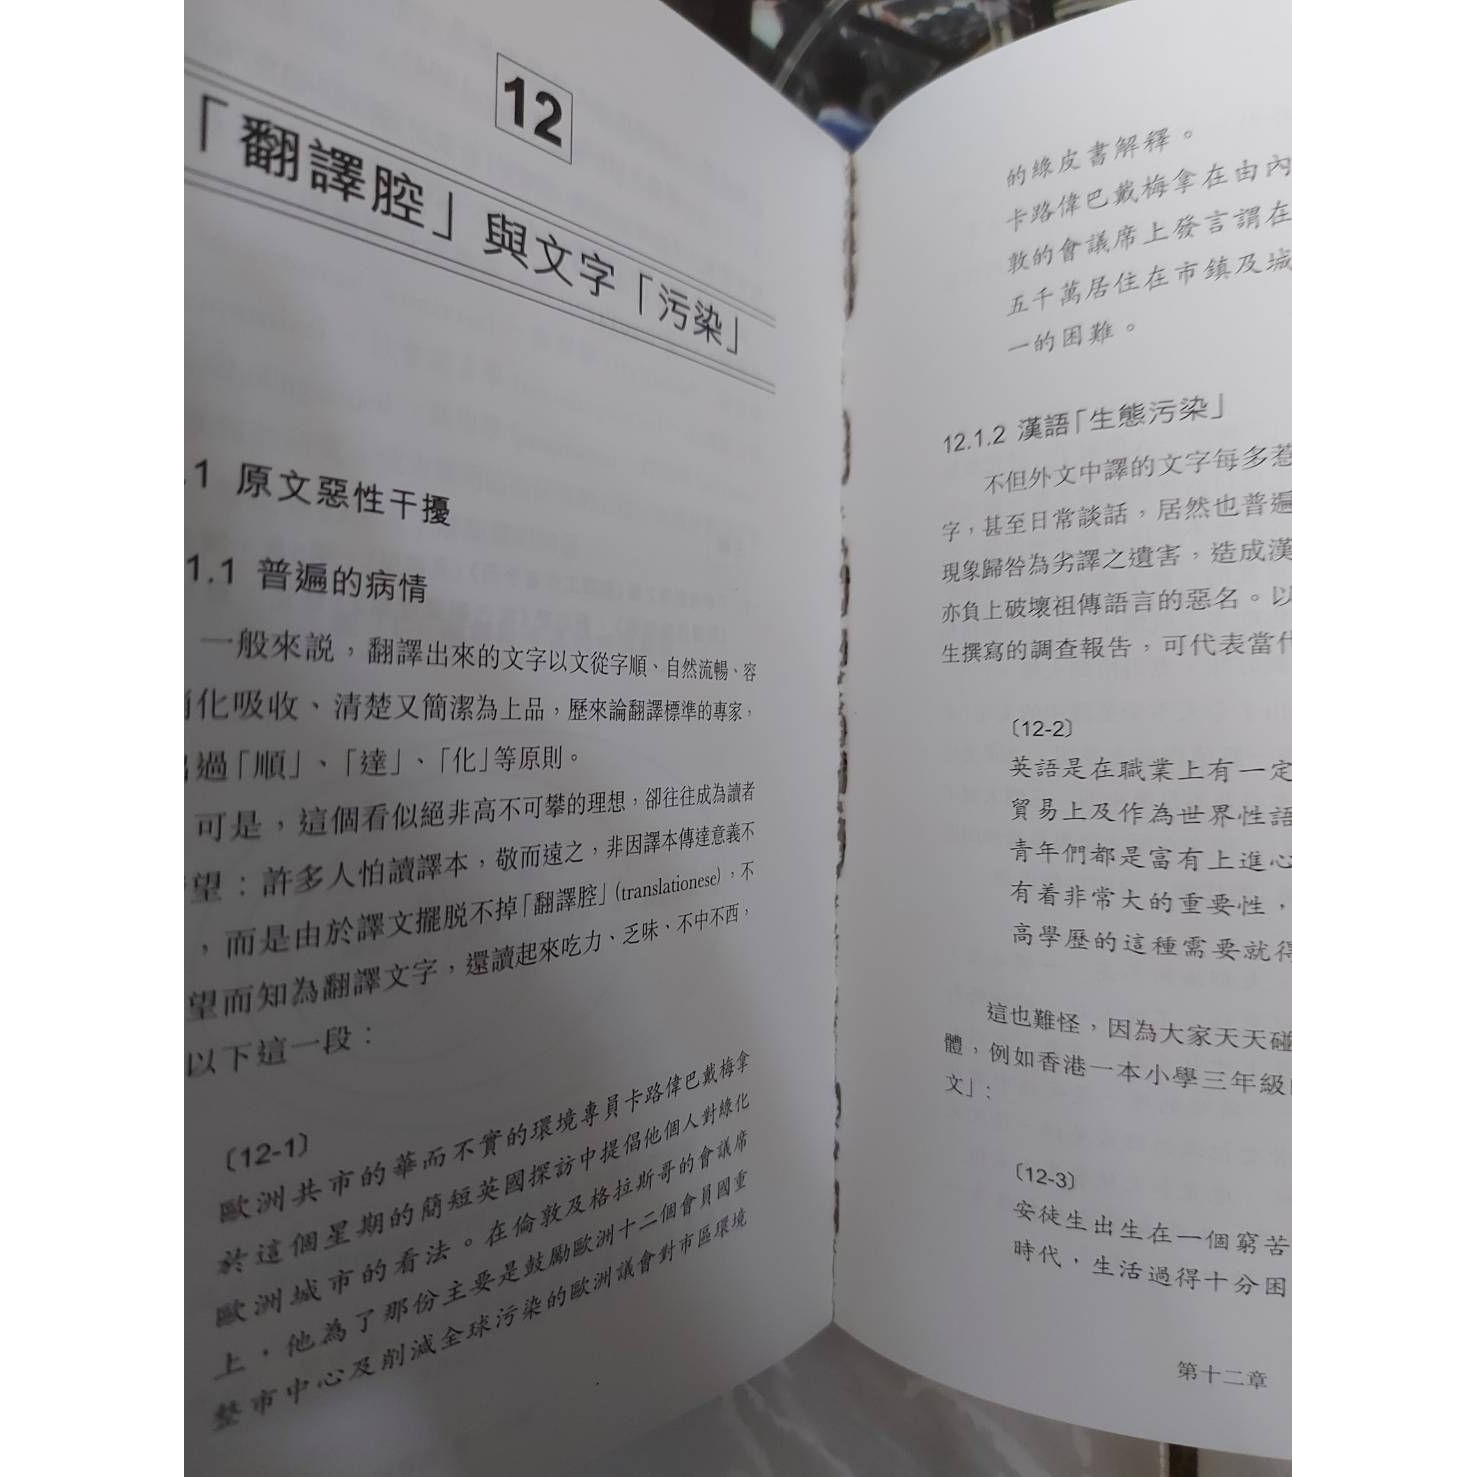 12
「翻譯腔」與文字「污染」
.1 原文惡性干擾
1.1 普遍的病情
一般來說，翻譯出來的文字以文從字順、自然流暢、容
化吸收、清楚又簡潔為上品，歷來論翻譯標準的專家，
過「順」、「達」、「化」等原則。
可是，這個看似絕非高不可攀的理想，卻往往成為讀者
望：許多人怕讀譯本，敬而遠之，非因譯本傳達意義不
，而是由於譯文擺脫不掉「翻譯腔」(translationese)，不
望而知為翻譯文字，還讀起來吃力、乏味、不中不西，
以下這一段：
〔12-1〕
歐洲共市的華而不實的環境專員卡路偉巴戴梅拿
於這個星期的簡短英國探訪中提倡他個人對綠化
歐洲城市的看法。在倫敦及格拉斯哥的會議席
上，他為了那份主要是鼓勵歐洲十二個會員國重
整市中心及削減全球污染的歐洲議會對市區環境
的綠皮書解釋。
卡路偉巴戴梅拿在由內
敦的會議席上發言謂在
五千萬居住在市鎮及城
一的困難。
12.1.2 漢語「生態污染」
不但外文中譯的文字每多惹
字，甚至日常談話，居然也普遍
現象歸咎為劣譯之遺害，造成漢
亦負上破壞祖傳語言的惡名。以
生撰寫的調查報告，可代表當代
〔12-2〕
英語是在職業上有一定
貿易上及作為世界性語
青年們都是富有上進心
有着非常大的重要性，
高學歷的這種需要就得
這也難怪，因為大家天天碰
體，例如香港一本小學三年級
文」：
〔12-3〕
安徒生出生在一個窮苦
時代，生活過得十分困
第十二章